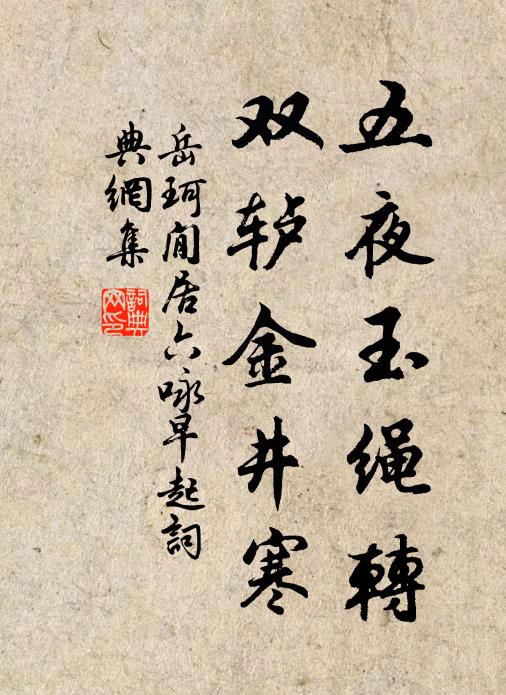 五夜玉绳轉
双轳金井寒
岳珂閒居六咏早起詞
典網集
詞典
网印